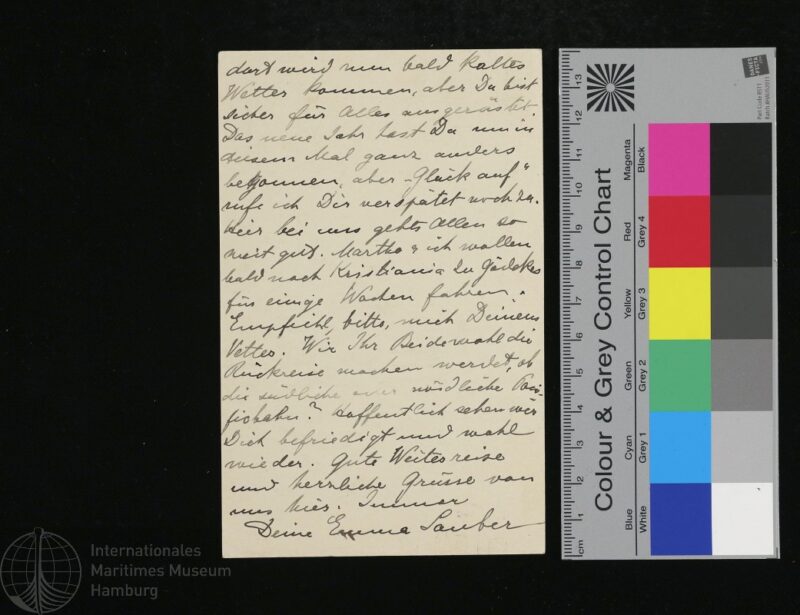 dort wird nun bald kaltes
Wetter kommen, aber Du bist
sicher für Alles ausgerüstet.
Das neue Jahr hast Du nun in
diesem Mal ganz anders
begonnen, aber „Glück auf"
rufe ich Dir verspätet noch zu.
Hier bei uns gehts Allen so
weit gut. Martha & ich wollen
bald nach Kristiania zu Gädekes
für einige Wochen fahren.
Empfiehl, bitte, mich Deinem
Vetter. Wie Ihr Beide wohl die
Rückreise machen werdet, ob
die südliche oder nördliche Paci-
ficbahn? Hoffentlich sehen wir
Dich befriedigt und wohl
wieder. Gute Weiterreise
und herzliche Grüsse von
uns hier. Immer
Deine Emma Sauber
Colour & Grey Control Chart
Blue Cyan Green Yellow Red Magenta
White Grey 1 Grey 2 Grey 3 Grey 4 Black
cm 1 2 3 4 5 6 7 8 9 10 11 12 13
DANES
PICTA
Internationales
Maritimes Museum
Hamburg